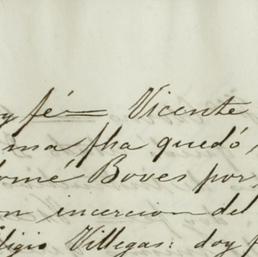 y fé= Vicente
ma fha quedó,
omé Boves por
n incercion del
ligio Villegas: doy f